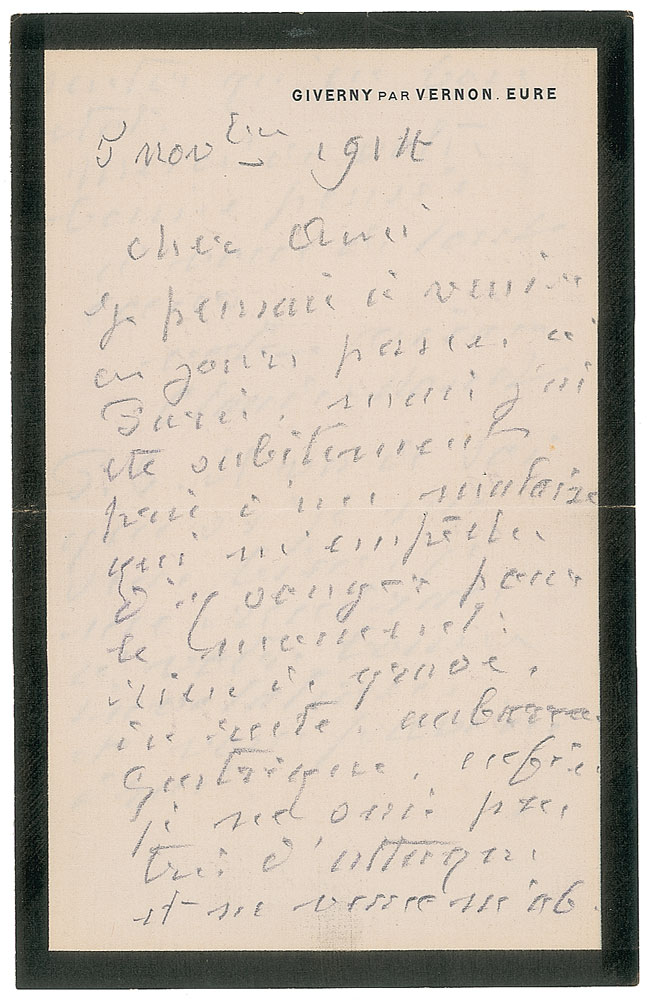 GIVERNY PAR VERNON. EURE
5 Nov bre 1914
cher Ami
je pensais à venir
un jour passer à
Paris, mais j'ai
été subitement
pris d'un malaise
qui m'empêche
d'y songer pour
le moment.
rien de grave,
embarras
gastrique, enfin
je ne suis pas
très d'attaque
et ne veux m'ab